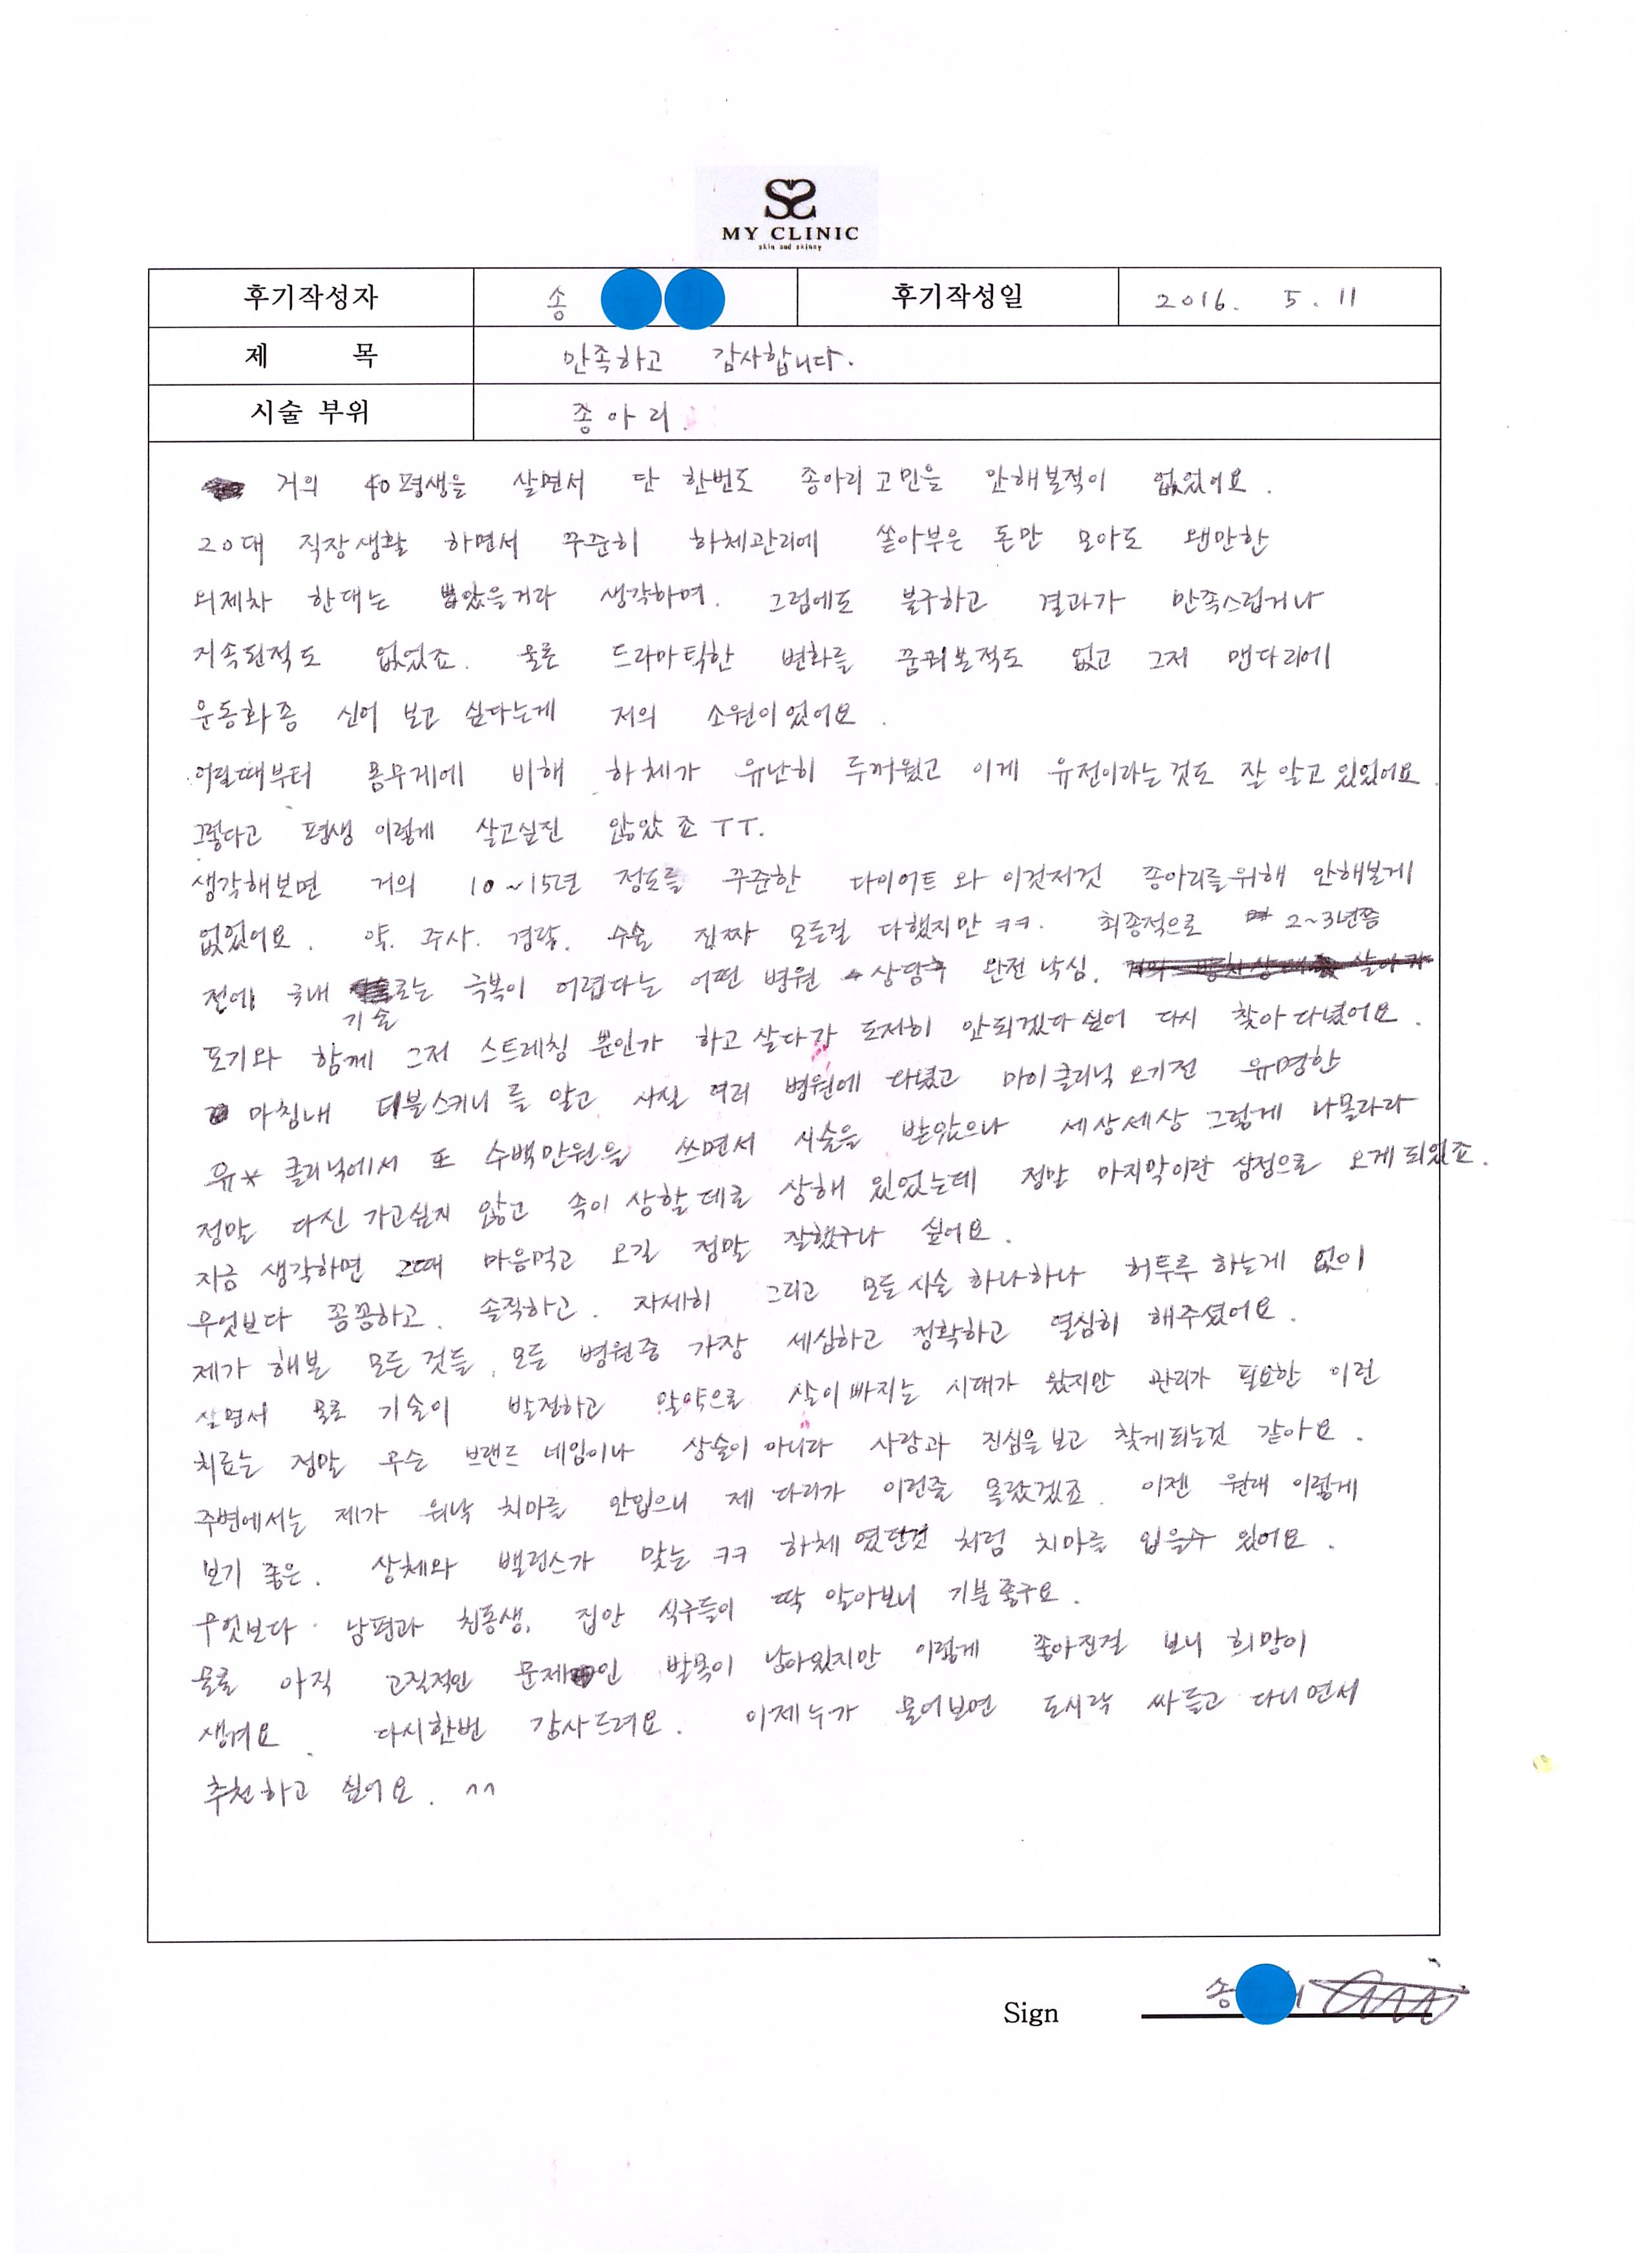 MY CLINIC
skin and skinny
후기작성자 송 후기작성일 2016. 5. 11
제 목 만족하고 감사합니다.
시술 부위 종아리.
거의 40평생을 살면서 단 한번도 종아리고민을 안해본적이 없었어요.
20대 직장생활 하면서 꾸준히 하체관리에 쏟아부은 돈만 모아도 왠만한
외제차 한대는 뽑았을거라 생각하며. 그럼에도 불구하고 결과가 만족스럽거나
지속된적도 없었죠. 물론 드라마틱한 변화를 꿈꿔본적도 없고 그저 맨다리에
운동화좀 신어 보고 싶다는게 저의 소원이었어요.
어릴때부터 몸무게에 비해 하체가 유난히 두꺼웠고 이게 유전이라는것도 잘 알고 있었어요.
그렇다고 평생 이렇게 살고싶진 않았죠 ㅜㅜ.
생각해보면 거의 10~15년 정도를 꾸준한 다이어트와 이것저것 종아리를위해 안해본게
없었어요. 약. 주사. 경락. 수술 진짜 모든걸 다했지만 ㅋㅋ. 최종적으로 2~3년쯤
전에 국내 기술로는 극복이 어렵다는 어떤 병원 상담후 완전 낙심.
포기와 함께 그저 스트레칭 뿐인가 하고살다가 도저히 안되겠다싶어 다시 찾아다녔어요.
마침내 더블스키니를 알고 사실 여러 병원에 다녔고 마이클리닉 오기전 유명한
유* 클리닉에서 또 수백만원을 쓰면서 시술을 받았으나 세상세상 그렇게 나몰라라
정말 다신 가고싶지 않고 속이 상할데로 상해 있었는데 정말 마지막이란 심정으로 오게되었죠.
지금 생각하면 그때 마음먹고 오길 정말 잘했구나 싶어요.
무엇보다 꼼꼼하고. 솔직하고. 자세히 그리고 모든시술 하나하나 허투루 하는게 없이
제가 해본 모든것들, 모든 병원중 가장 세심하고 정확하고 열심히 해주셨어요.
살면서 물론 기술이 발전하고 알약으로 살이빠지는 시대가 왔지만 관리가 필요한 이런
치료는 정말 무슨 브랜드 네임이나 상술이 아니라 사람과 진심을보고 찾게되는것 같아요.
주변에서는 제가 워낙 치마를 안입으니 제 다리가 이런줄 몰랐겠죠. 이젠 원래 이렇게
보기 좋은. 상체와 밸런스가 맞는 ㅋㅋ 하체였던것 처럼 치마를 입을수 있어요.
무엇보다 남편과 친동생, 집안 식구들이 딱 알아보니 기분좋구요.
물론 아직 고질적인 문제인 발목이 남아있지만 이렇게 좋아진걸 보니 희망이
생겨요. 다시한번 감사드려요. 이제누가 물어보면 도시락 싸들고 다니면서
추천하고 싶어요. ^^
Sign 송